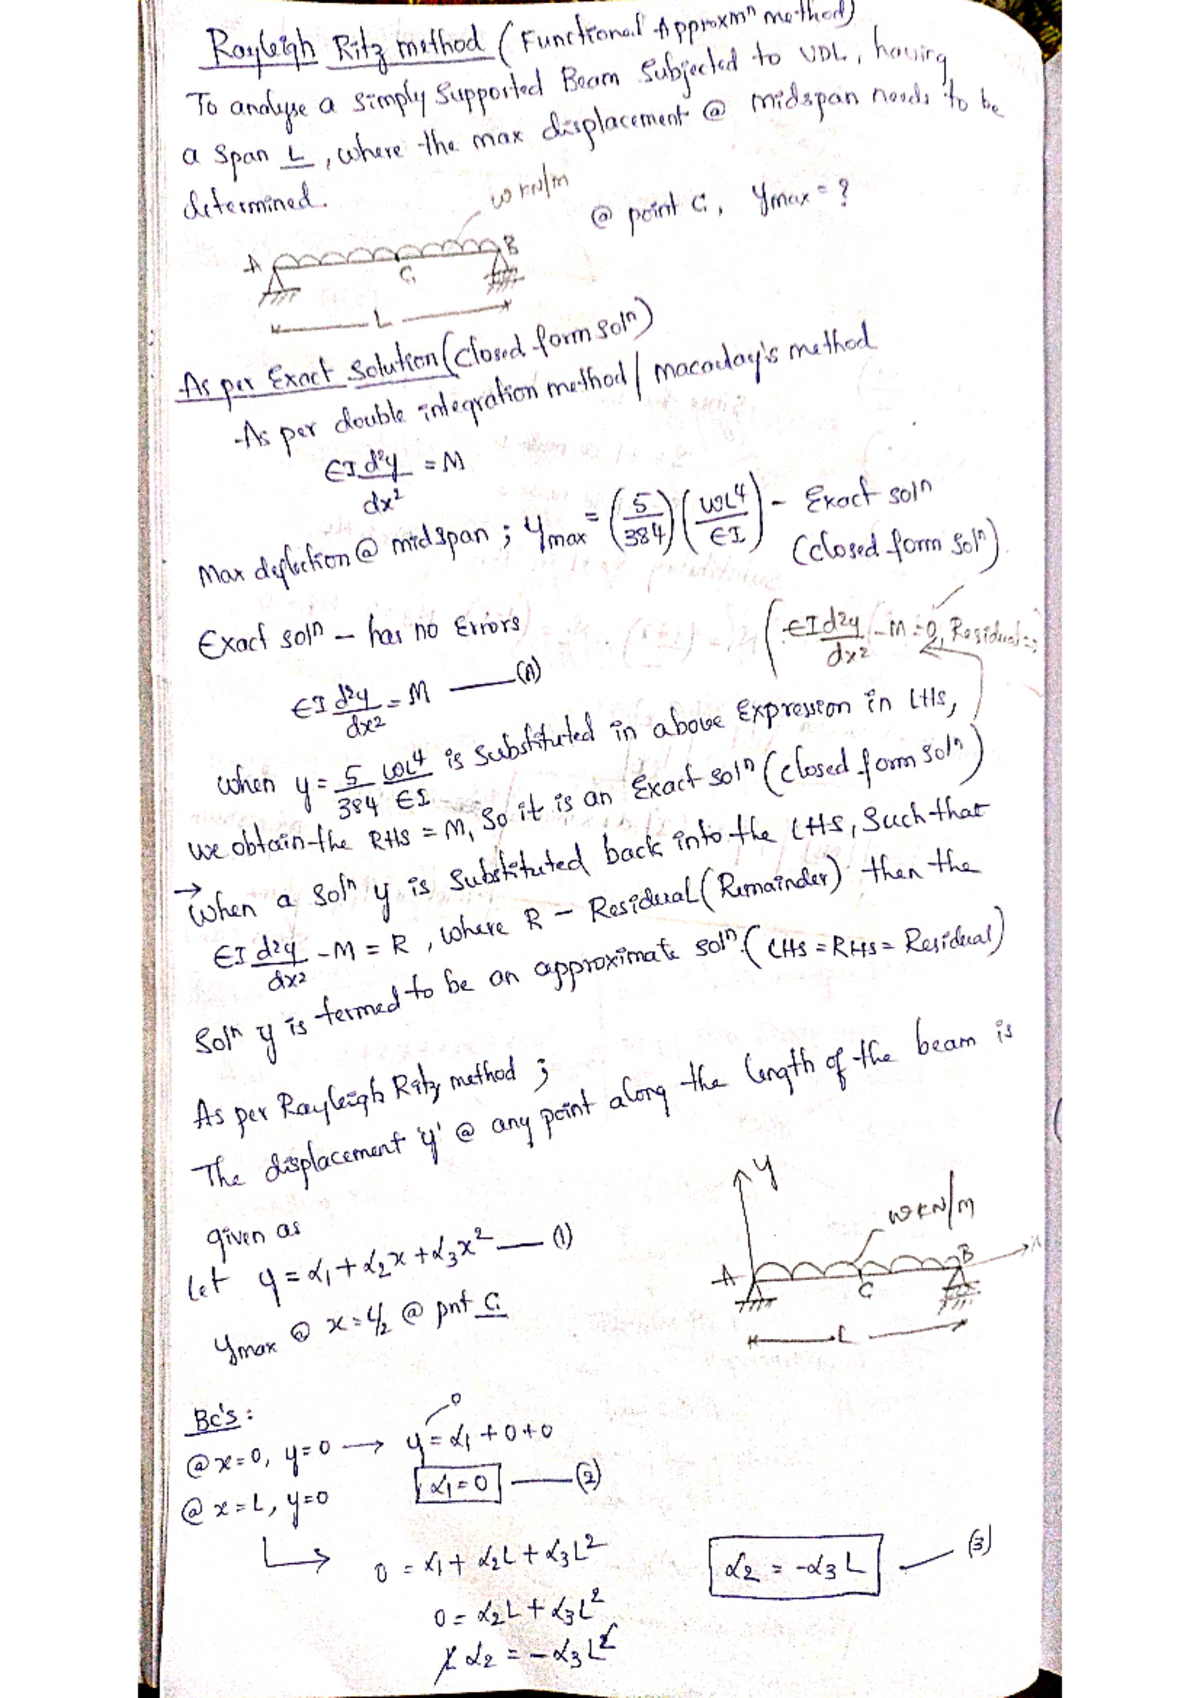 Rayleigh Ritz method (Functional Approxmn method)
To analyse a simply supported Beam Subjected to UDL, having
a span L, where the max displacement @ midspan needs to be
determined.
w kN/m
@ point C, ymax = ?
A C B
L
As per Exact Solution (closed form soln)
As per double integration method / macaulay's method
EI d²y/dx² = M
Max deflection @ midspan ; ymax = (5/384) (wL⁴/EI) - Exact soln
(closed form soln).
Exact soln - has no Errors
(EI d²y/dx² - M = 0, Residual=0
EI d²y/dx² = M —(A)
when y = 5/384 wL⁴/EI is substituted in above Expression in LHS,
we obtain the RHS = M, so it is an Exact soln (closed form soln)
→ When a soln y is substituted back into the LHS, Such that
EI d²y/dx² - M = R, where R - Residual (Remainder) then the
Soln y is termed to be an approximate soln. (LHS = RHS = Residual)
As per Rayleigh Ritz method ;
The displacement 'y' @ any point along the length of the beam is
given as
Let y = α₁ + α₂x + α₃x² — (1)
ymax @ x = L/2 @ pnt C
y
w kN/m
A C B
L
Bc's :
@ x=0, y=0 → y = α₁ + 0 + 0
0
α₁ = 0 — (2)
@ x = L, y=0
↳ 0 = α₁ + α₂L + α₃L²
0 = α₂L + α₃L²
L α₂ = -α₃L²
α₂ = -α₃L — (3)